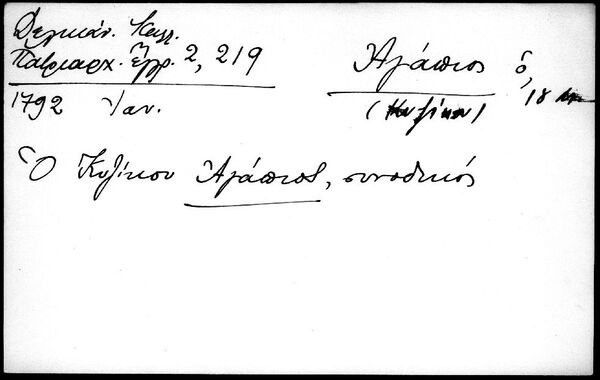 Δελικάν. Καλ.
Πατριαρχ. Ἔγγρ. 2, 219
1792 Ἰαν.
Ἀγάπιος ὁ,
(Κυζίκου) 18
Ὁ Κυζίκου Ἀγάπιος, συνοδικός